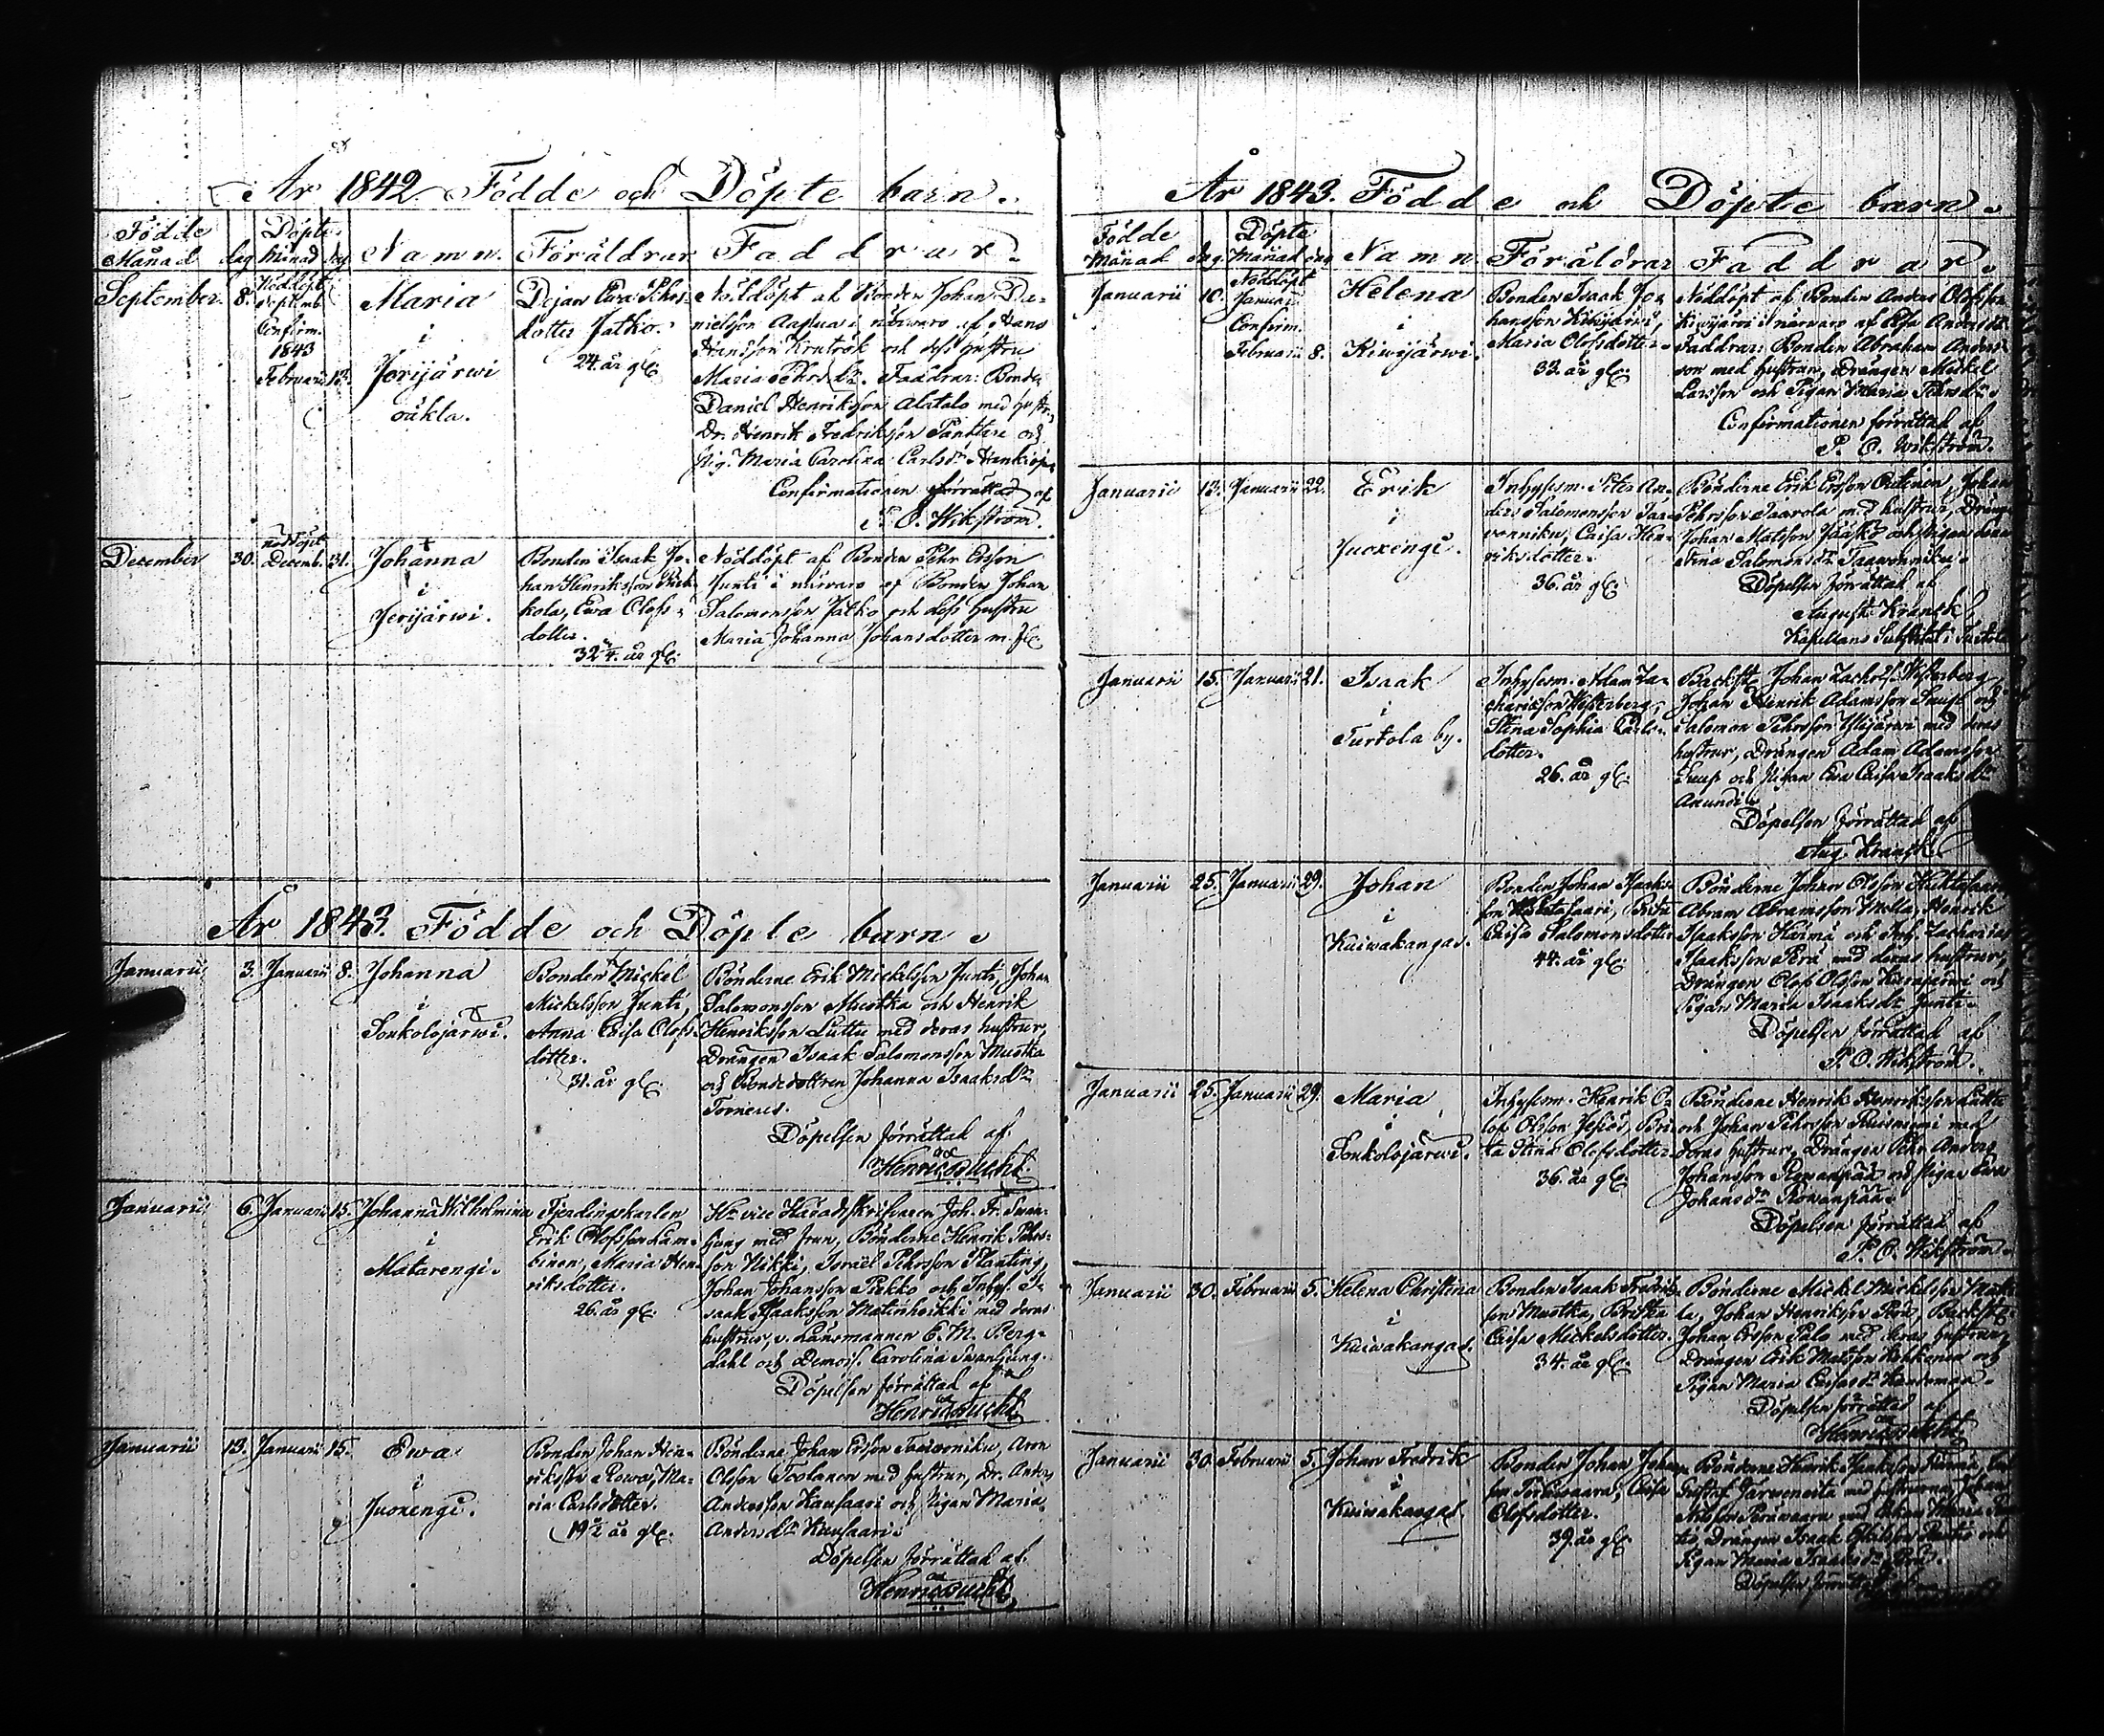 År 1842 Födde och Döpte barn.
Födde
Månad
dag
Döpte
Månad
dag
Namn.
Föräldrar
Faddrar.
September
8.
Nöddöpt
Septemb.
Confirm.
1843
Februarii 12.
Maria
i
Jerijärwi
oäkla.
Pigan Ewa Pehrs-
dotter Jatko.
24. år gl.
Nöddöpt af Bonden Johan Da-
nielsson i närwaro af Hans
Hansson och dess hustru
Maria Pehrsdr. Faddrar: Bonden
Daniel Henriksson Alatalo med hustru,
Dr. Henrik Fredriksson och
Pig. Maria Carolina Carlsdr
Confirmationen förrättad af
P. O. Wikström.
December
30.
nöddöpt
Decemb. 31.
Johanna
i
Jerijärwi.
Bonden Isaak Jo-
han Henriksson
Ewa Olofs-
dotter.
32 år gl.
Nöddöpt af Bonden Pehr Ersson
Junti i närwaro af Bonden Johan
Salomonsson Jatko och dess hustru
Maria Johanna Johansdotter m. fl.
År 1843. Födde och Döpte barn.
Januarii
3.
Januarii 8.
Johanna
i
Soukolojärwi.
Bonden Mickel
Mickelsson Junti,
Anna Caisa Olofs-
dotter.
31. år gl.
Bönderne Erik Mickelsson Junti, Johan
Salomonsson Mustka och Henrik
Henriksson Luttu med deras hustrur,
Drängen Isaak Salomonsson Mustka
och Bondedottren Johanna Isaaksdr
Torneus.
Döpelsen förrättad af
Januarii
6.
Januarii 15.
Johanna Wilhelmina
i
Matarengi.
Fjerdingskarlen
Erik Olofsson Lam-
binen, Maria Hen-
riksdotter.
26. år gl.
Hr vice Häradsskrifwaren Joh. Fr. Swan-
ljung med frun, Bönderne Henrik Pehrs-
son Nikki, Israel Pehrsson Planting,
Johan Johansson Piekko och Inhys. I-
saak Isaaksson Matinheikki med deras
hustrur, v. Länsmannen C. M. Berg-
dahl och Demois. Carolina Swanljung.
Döpelsen förrättad af
Januarii
13.
Januarii 15.
Ewa
i
Juoxengi.
Bonden Johan Hen-
riksson Rowa, Ma-
ria Carlsdotter.
19½ år gl.
Bönderne Johan Ersson Taawoniku, Aron
Olsson Toolanen med hustrur, Dr. Anders
Andersson Kausaari och Pigan Maria
Andersdr Kausaari.
Döpelsen förrättad af
År 1843. Födde och Döpte barn.
Födde
Månad
dag
Döpte
Månad
dag
Namn
Föräldrar
Faddrar.
Januarii
10.
Nöddöpt
Januari
Confirm.
Februarii 8.
Helena
i
Kiwijärwi.
Bonden Isaak Jo-
hansson Kiwijärwi,
Maria Olofsdotter.
33. år gl.
Nöddöpt af Bonden Anders Olofsson
Kiwijärwi i närwaro af Elsa Andersdr
Faddrar: Bonden Abraham Anders-
son med hustrun, Drängen Mickel
Larsson och Pigan Maria Pehrsdr.
Confirmationen förrättad af
P. O. Wikström.
Januarii
13.
Januarii 22.
Erik
i
Juoxengi.
Inhysesm. Peter An-
ders Salomonsson Taa-
wonniku, Caisa Hen-
riksdotter.
36. år gl.
Bönderne Erik Ersson Outinen, Johan
Pehrsson Saarola med hustrur, Dräng
Johan Matsson Jääskö och Pigan
Stina Salomonsdr Taawonniku.
Döpelsen förrättad af
August Kranck
Kapellans Substitut i Turtola
Januarii
15.
Januarii 21.
Isaak
i
Turtola by.
Inhysesm. Adam Za-
chariesson Westerberg,
Stina Sophia Carls-
dotter.
26. år gl.
Backst. Johan Zachrisson Westerberg,
Johan Henrik Adamsson och
Salomon Pehrsson Ylijärwi med deras
hustrur, Drängen Adam Adamsson
och Pigan Ewa Caisa Isaaksdr
Döpelsen förrättad af
Aug. Kranck
Januarii
25.
Januarii 29.
Johan
i
Kuiwakangas.
Bonden Johan Isaaks-
son Brita
Caisa Salomonsdotter
44. år gl.
Bönderne Johan Olsson
Abram Abramsson Mella, Henrik
Isaaksson Karmä och Inh. Zacharias
Isaaksson Perä med deras hustrur,
Drängen Olof Olsson och
Pigan Maria Isaaksdr Junti.
Döpelsen förrättad af
P. O. Wikström.
Januarii
25.
Januarii 29.
Maria
i
Soukolojärwi.
Inhysesm. Henrik O-
lof Olsson Jesiö, Bri-
ta Stina Olofsdotter
36. år gl.
Bönderne Henrik Henriksson Luttu
och Johan Pehrsson med
deras hustrur, Drängen Pehr Anders
Johansson Rowanpää och Pigan Ewa
Johansdr Rowanpää.
Döpelsen förrättad af
P. O. Wikström.
Januarii
30.
Februarii 5.
Helena Christina
i
Kuiwakangas.
Bonden Isaak Fredriks-
son Mustka, Britta
Caisa Mickelsdotter.
34. år gl.
Bönderne Mickel Mickelsson
Johan Henriksson Perä, Backst.
Johan Ersson Palo med deras hustrur,
Drängen Erik Matsson och
Pigan Maria
Döpelsen förrättad af
Januarii
30.
Februarii 5.
Johan Fredrik
i
Kuiwakangas.
Bonden Johan Johans-
son Caisa
Olofsdotter.
39. år gl.
Bönderne Henrik Isaaksson
Gustaf med hustrurna, Johan
Nilsson
Drängen Isaak och
Pigan Maria Isaaksdr
Döpelsen förrättad af